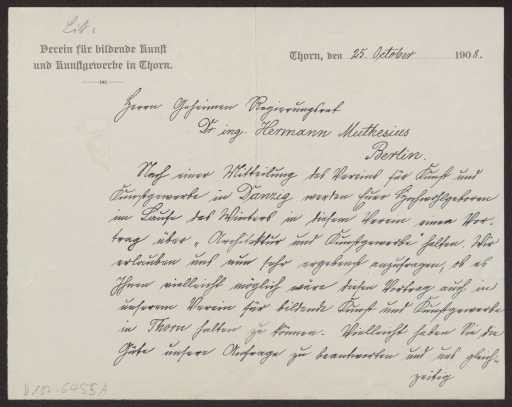 Lit.
Verein für bildende Kunst
und Kunstgewerbe in Thorn.
Thorn, den 25. October 1908.
Herrn Geheimen Regierungsrat
Dr ing. Hermann Muthesius
Berlin.
Nach einer Mitteilung des Vereins für Kunst und
Kunstgewerbe in Danzig werden Euer Hochwohlgeboren
im Laufe des Winters in diesem Verein einen Vor-
trag über „Architektur und Kunstgewerbe" halten. Wir
erlauben uns nun sehr ergebenst anzufragen, ob es
Ihnen vielleicht möglich wäre diesen Vortrag auch in
unserem Verein für bildende Kunst und Kunstgewerbe
in Thorn halten zu können. Vielleicht haben Sie die
Güte unsere Anfrage zu beantworten und uns gleich-
zeitig